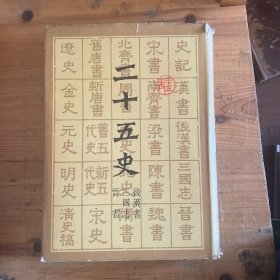 史記
漢書
後漢書
三國志
晉書
宋書
南齊書
梁書
陳書
魏書
北齊書
周書
舊唐書
新唐書
舊五代史
新五代史
宋史
遼史
金史
元史
明史
清史稿
二十五史
後漢書
三國志
晉書